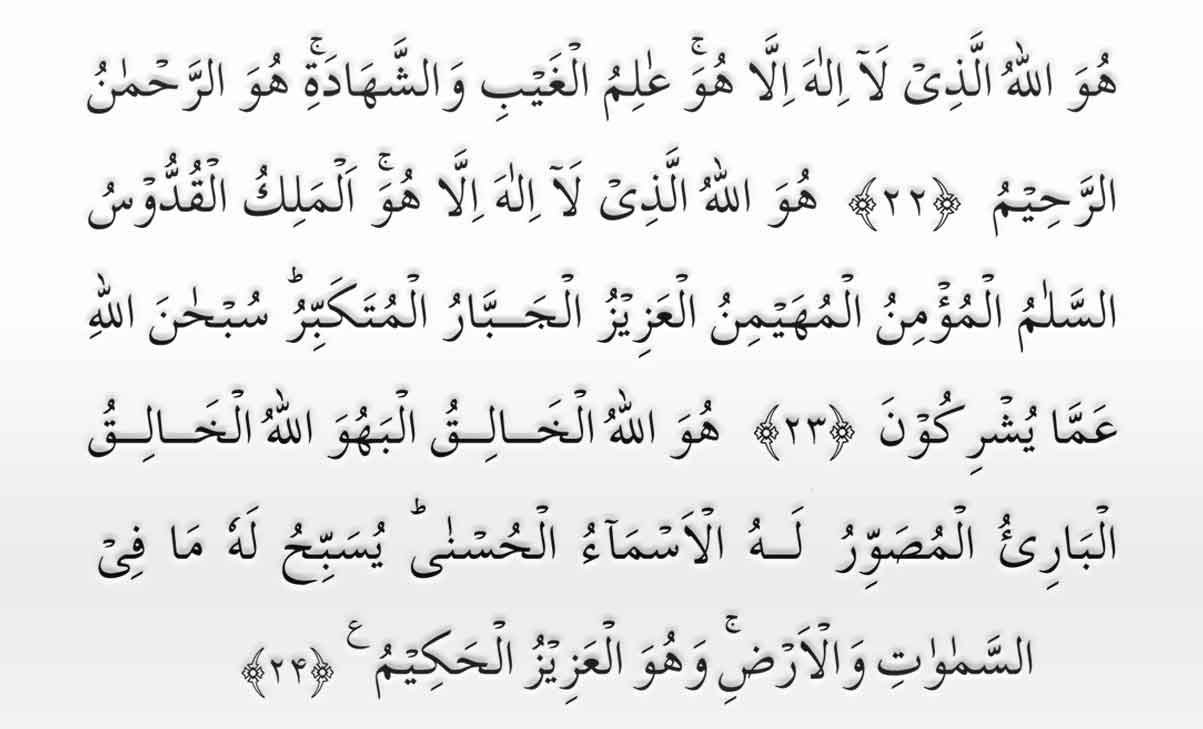 هُوَ اللّٰهُ الَّذِىْ لَآ اِلٰهَ اِلَّا هُوَۚ عٰلِمُ الْغَيْبِ وَالشَّهَادَةِۚ هُوَ الرَّحْمٰنُ
الرَّحِيْمُ ﴿۲۲﴾ هُوَ اللّٰهُ الَّذِىْ لَآ اِلٰهَ اِلَّا هُوَۚ اَلْمَلِكُ الْقُدُّوْسُ
السَّلٰمُ الْمُؤْمِنُ الْمُهَيْمِنُ الْعَزِيْزُ الْجَـبَّارُ الْمُتَكَبِّرُؕ سُبْحٰنَ اللّٰهِ
عَمَّا يُشْرِكُوْنَ ﴿۲۳﴾ هُوَ اللّٰهُ الْخَـالِـقُ الْبَهُوَ اللّٰهُ الْخَـالِـقُ
الْبَارِئُ الْمُصَوِّرُ لَـهُ الْاَسْمَآءُ الْحُسْنٰىؕ يُسَبِّحُ لَهٗ مَا فِىْ
السَّمٰوٰتِ وَالْاَرْضِۚ وَهُوَ الْعَزِيْزُ الْحَكِيْمُ ع ﴿۲۴﴾